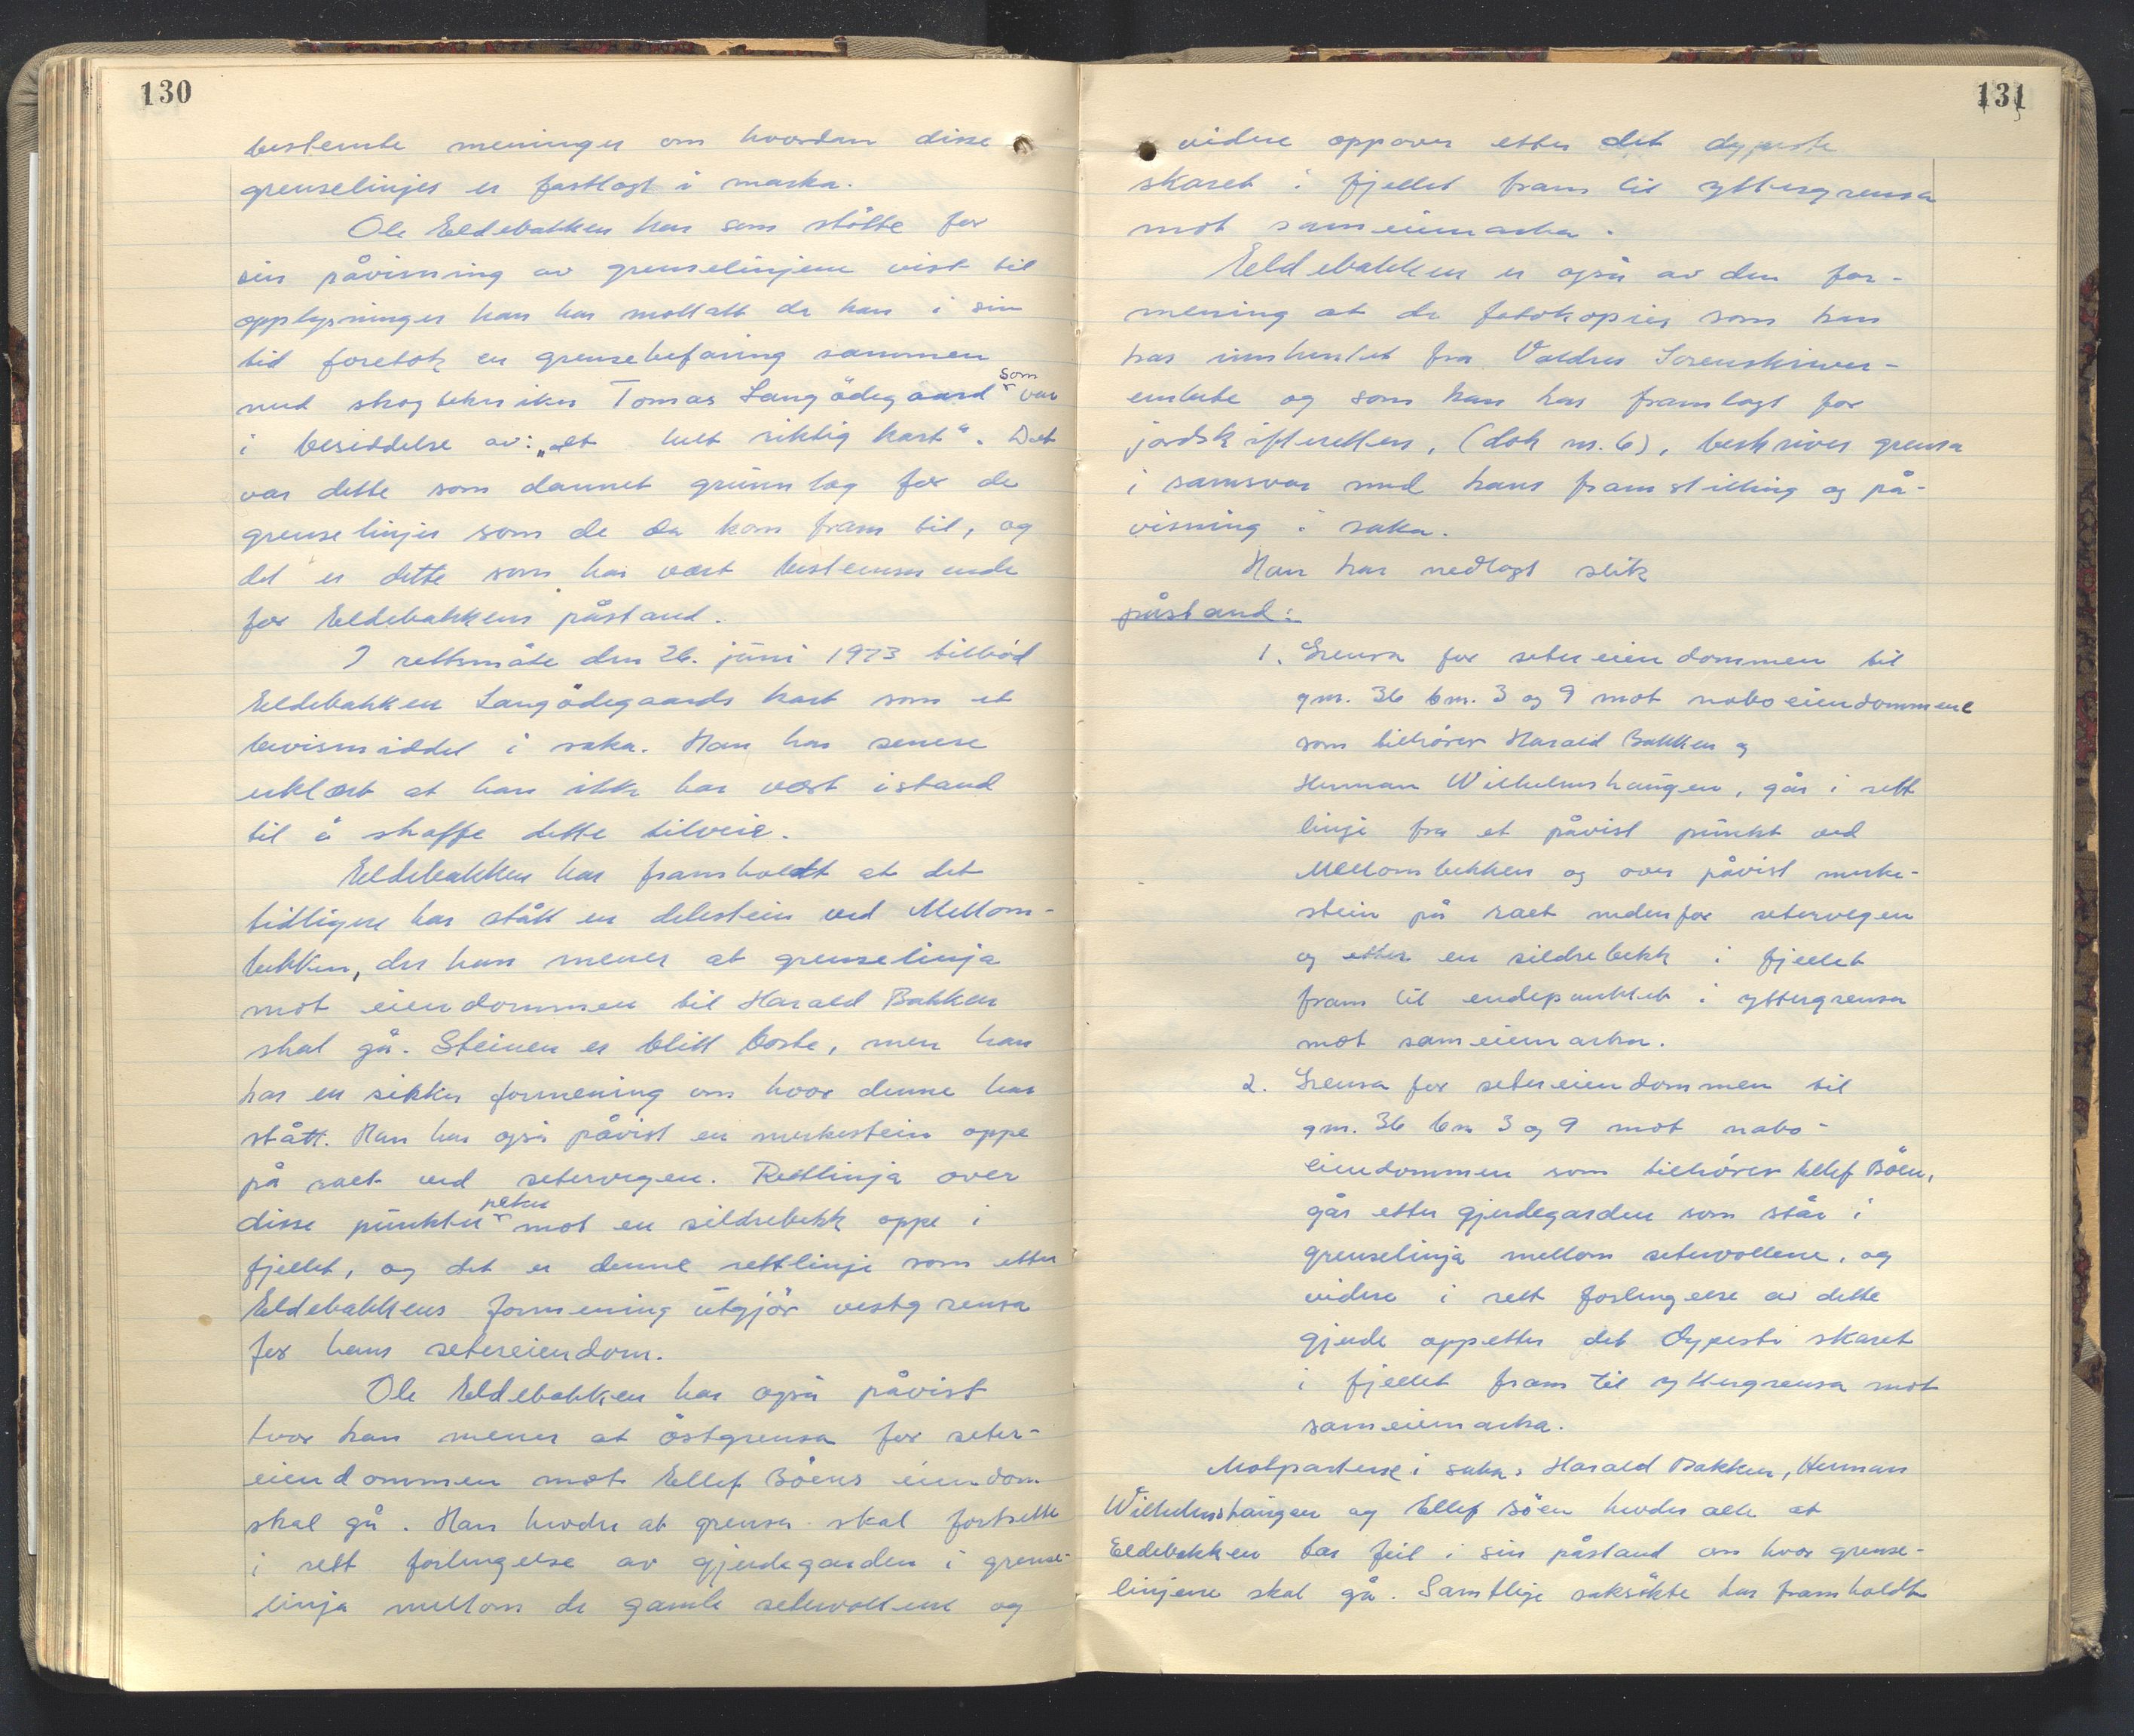 130
bestemte meninger om hvordan disse
grenselinjer er fastlagt i marka.
Ole Eeldebakken har som støtte for
sin påvisning av grenselinjene vist til
opplysninger han har mottatt da han i sin
tid foretok en grensebefaring sammen
med skogtekniker Tomas Langødegaard som var
i besiddelse av: „et helt riktig kart“. Det
var dette som dannet grunnlag for de
grenselinjer som de da kom fram til, og
det er dette som har vært bestemmende
for Eeldebakkens påstand.
I rettsmøte den 26. juni 1973 tilbød
Eeldebakken Langødegaards kart som et
bevismiddel i saka. Han har senere
erklært at han ikke har vært istand
til å skaffe dette tilveie.
Eeldebakken har framholdt at det
tidligere har stått en delestein ved Mellom-
bekken, der han mener at grenselinja
mot eiendommen til Harald Bakken
skal gå. Steinen er blitt borte, men han
har en sikker formening om hvor denne har
stått. Han har også påvist en merkestein oppe
på raet ved setervegen. Rettlinja over
disse punkter peker mot en sildrebekk oppe i
fjellet, og det er denne rettlinje som etter
Eeldebakkens formening utgjør vestgrensa
for hans setereiendom.
Ole Eeldebakken har også påvist
hvor han mener at østgrensa for seter-
eiendommen mot Ellef Bøens eiendom
skal gå. Han hevder at grensa skal fortsette
i rett forlengelse av gjerdegarden i grense-
linja mellom de gamle setervollene og
131
videre oppover etter det dypeste
skaret i fjellet fram til yttergrensa
mot sameiemarka.
Eeldebakken er også av den for-
mening at de fotokopier som han
har innhentet fra Valdres Sorenskriver-
embete og som han har framlagt for
jordskifteretten, (dok nr. 6), beskriver grensa
i samsvar med hans framstilling og på-
visning i saka.
Han har nedlagt slik
påstand:
1. Grensa for setereiendommen til
gnr. 36 bnr. 3 og 9 mot naboeiendommene
som tilhører Harald Bakken og
Herman Wilhelmshaugen, går i rett
linje fra et påvist punkt ved
Mellombekken og over påvist merke-
stein på raet nedenfor setervegen
og etter en sildrebekk i fjellet
fram til endepunktet i yttergrensa
mot sameiemarka.
2. Grensa for setereiendommen til
gnr. 36 bnr 3 og 9 mot nabo-
eiendommen som tilhører Ellef Bøen,
går etter gjerdegarden som står i
grenselinja mellom setervollene, og
videre i rett forlengelse av dette
gjerde oppetter det dypeste skaret
i fjellet fram til yttergrensa mot
sameiemarka.
Motpartene i saka: Harald Bakken, Herman
Wilhelmshaugen og Ellef Bøen hevder alle at
Eeldebakken tar feil i sin påstand om hvor grense-
linjene skal gå. Samtlige saksøkte har framholdt